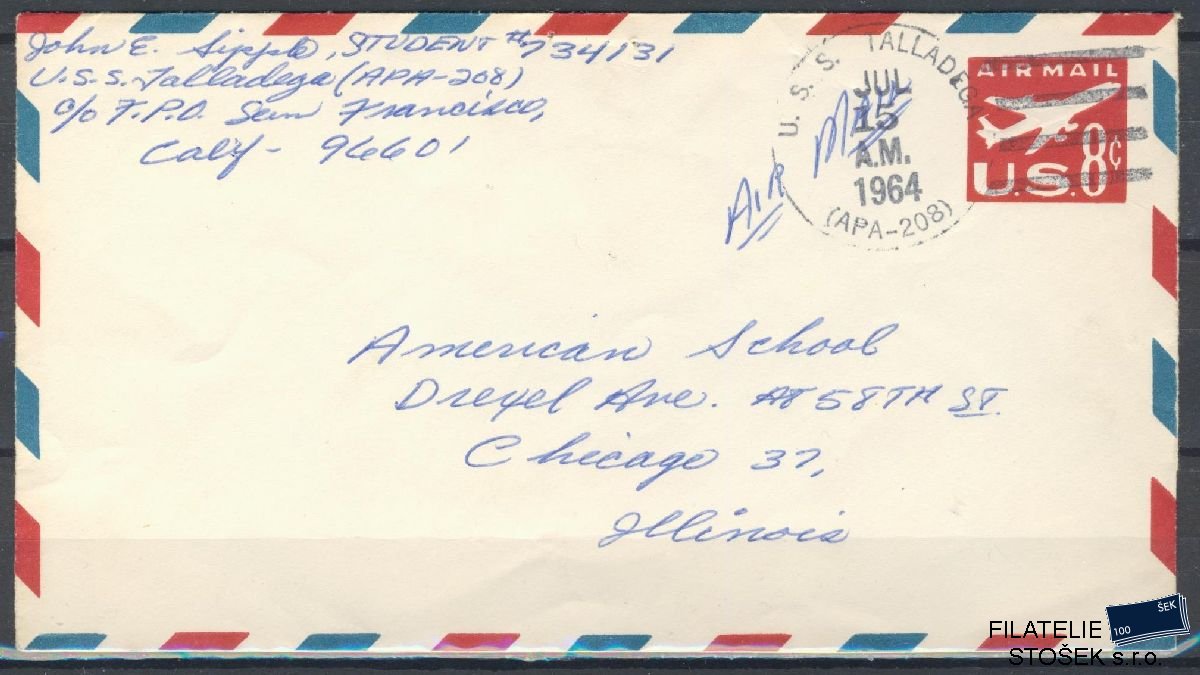 John E. Sipple, STUDENT #734131
U.S.S. Talladega (APA-208)
c/o F.P.O. San Francisco,
Calif - 96601
U. S. S. TALLADEGA
JUL
15
A.M.
1964
(APA-208)
AIR MAIL
U.S. 8¢
AIR MAIL
American School
Drexel Ave. AT 58TH ST.
Chicago 37,
Illinois
FILATELIE
STOŠEK s.r.o.
100
ŠEK